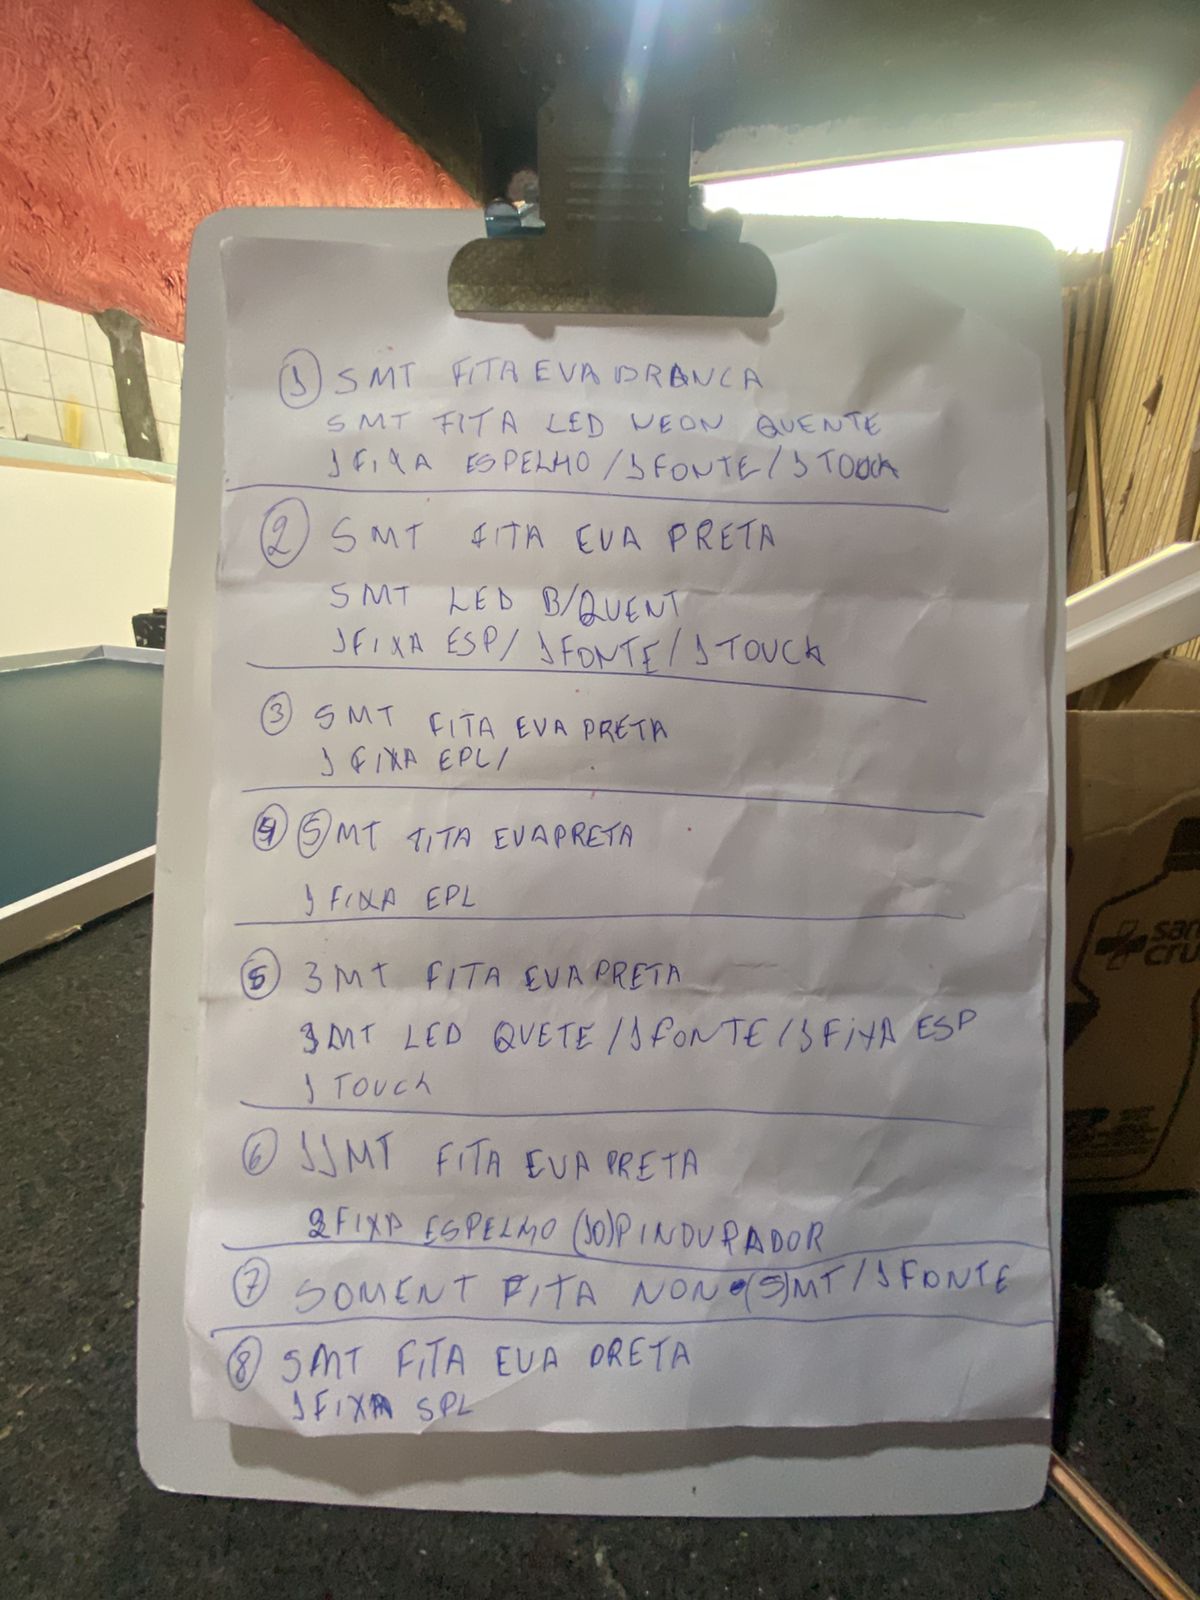 1 5MT FITA EVA BRANCA
5MT FITA LED NEON QUENTE
1 FIXA ESPELHO / 1 FONTE / 1 TOUCK
2 5MT FITA EVA PRETA
5MT LED B/QUENT
1 FIXA ESP / 1 FONTE / 1 TOUCK
3 5MT FITA EVA PRETA
1 FIXA EPL /
4 5 MT FITA EVA PRETA
1 FIXA EPL
5 3MT FITA EVA PRETA
3MT LED QUETE / 1 FONTE / 1 FIXA ESP
1 TOUCH
6 11MT FITA EVA PRETA
2 FIXA ESPELHO (10) PINDURADOR
7 SOMENT FITA NON (5) MT / 1 FONTE
8 5MT FITA EVA PRETA
1 FIXA SPL